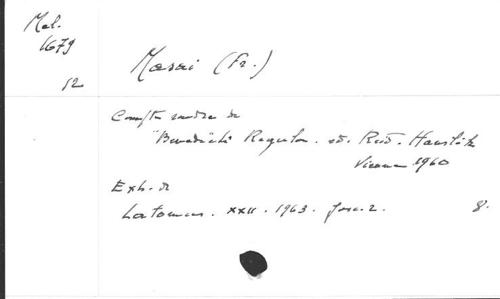 Mel.
1679
12
Masai (Fr.)
Compte rendu de
"Benedicti Regula. ed. Rud. Hanslik
Vienne 1960
Extr. de
Latomus. XXII. 1963. fasc. 2. 8.